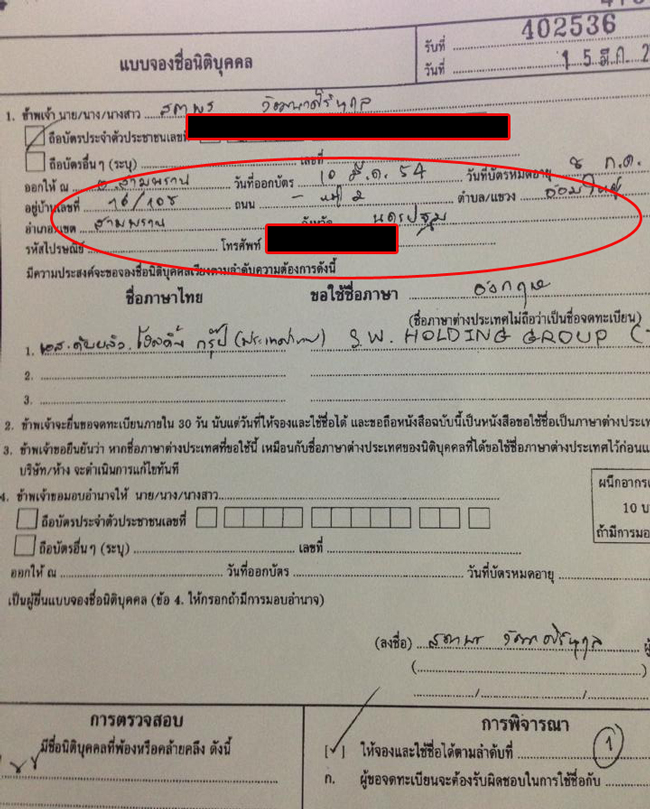 402536
รับที่
แบบจองชื่อนิติบุคคล
วันที่ 15 มี.ค. 2
1. ข้าพเจ้า นาย/นาง/นางสาว สถาพร
ถือบัตรประจำตัวประชาชนเลขที่
ถือบัตรอื่นๆ (ระบุ) เลขที่
ออกให้ ณ อ.สามพราน วันที่ออกบัตร 10 วันที่บัตรหมดอายุ 8 ก.ค.
อยู่บ้านเลขที่ 16/108 ถนน - หมู่ 2 ตำบล/แขวง อ้อมใหญ่
อำเภอ/เขต สามพราน จังหวัด นครปฐม
รหัสไปรษณีย์ โทรศัพท์
มีความประสงค์จะขอจองชื่อนิติบุคคลเรียงตามลำดับความต้องการดังนี้
ชื่อภาษาไทย ขอใช้ชื่อภาษา อังกฤษ
(ชื่อภาษาต่างประเทศไม่ถือว่าเป็นชื่อจดทะเบียน)
1. เอส.ดับบลิว.โฮลดิ้ง กรุ๊ป (ประเทศไทย) S.W. HOLDING GROUP (
2.
3.
2. ข้าพเจ้าจะยื่นขอจดทะเบียนภายใน 30 วัน นับแต่วันที่ให้จองและใช้ชื่อได้ และขอถือหนังสือฉบับนี้เป็นหนังสือขอใช้ชื่อเป็นภาษาต่างประเท
3. ข้าพเจ้าขอยืนยันว่า หากชื่อภาษาต่างประเทศที่ขอใช้นี้ เหมือนกับชื่อภาษาต่างประเทศของนิติบุคคลที่ได้ขอใช้ชื่อภาษาต่างประเทศไว้ก่อนแ
บริษัท/ห้าง จะดำเนินการแก้ไขทันที
ผนึกอากร
4. ข้าพเจ้าขอมอบอำนาจให้ นาย/นาง/นางสาว
10 บ
ถือบัตรประจำตัวประชาชนเลขที่
ถ้ามีการมอ
ถือบัตรอื่นๆ (ระบุ) เลขที่
ออกให้ ณ วันที่ออกบัตร วันที่บัตรหมดอายุ
เป็นผู้ยื่นแบบจองชื่อนิติบุคคล (ข้อ 4. ให้กรอกถ้ามีการมอบอำนาจ)
(ลงชื่อ) สถาพร
การตรวจสอบ การพิจารณา
มีชื่อนิติบุคคลที่พ้องหรือคล้ายคลึง ดังนี้
ให้จองและใช้ชื่อได้ตามลำดับที่ 1
ก. ผู้ขอจดทะเบียนจะต้องรับผิดชอบในการใช้ชื่อกับ